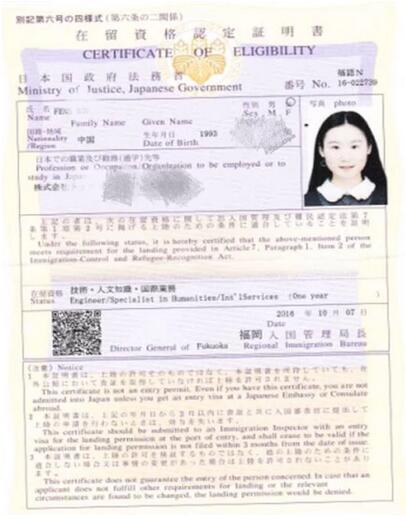 別記第六号の四様式(第六条の二関係)
在留資格認定証明書
CERTIFICATE OF ELIGIBILITY
日本国政府法務省
Ministry of Justice, Japanese Government
福認N
番号 No. 16-022739
氏名 FENG
Family Name Given Name
性別 男 女
Sex M F
写真 photo
国籍・地域 中国
Nationality /Region
生年月日 1993
Date of Birth
日本での職業及び勤務(通学)先等
Profession or Occupation/Organization to be employed or to
study in Japan
株式会社
上記の者は、次の在留資格に関して出入国管理及び難民認定法第7
条第1項第2号に掲げる上陸のための条件に適合していることを証明し
ます。
Under the following status, it is hereby certified that the above-mentioned person
meets requirement for the landing provided in Article 7, Paragraph 1, Item 2 of the
Immigration-Control and Refugee-Recognition Act.
在留資格 技術・人文知識・国際業務
Status Engineer/Specialist in Humanities/Int'lServices (One year )
2016 10月07日
Date
福岡入国管理局長
Director General of Fukuoka Regional Immigration Bureau
(注意) Notice
1 本証明書は、上陸の許可そのものではなく、本証明書を所持していても、在
外公館において査証を取得していなければ上陸を許可されません。
This certificate is not an entry permit. Even if you have this certificate, you are not
admitted to Japan unless you get an entry visa at a Japanese Embassy or Consulate
abroad.
2 本証明書は、上記の年月日から3月以内に査証と共に入国審査官に提出して
上陸の申請を行わないときは、効力を失います。
This certificate should be submitted to an Immigration Inspector with an entry
visa for the landing permission at the port of entry, and shall cease to be valid if the
application for landing permission is not filed within 3 months from the date of issue.
3 本証明書は、上陸の許可を保証するものではなく、他の上陸のための条件に
適合しない場合又は事情の変更があった場合は上陸を許可されないことがあり
ます。
This certificate does not guarantee the entry of the person concerned. In case that an
applicant does not fulfill other requirements for landing or the relevant
circumstances are found to be changed, the landing permission would be denied.